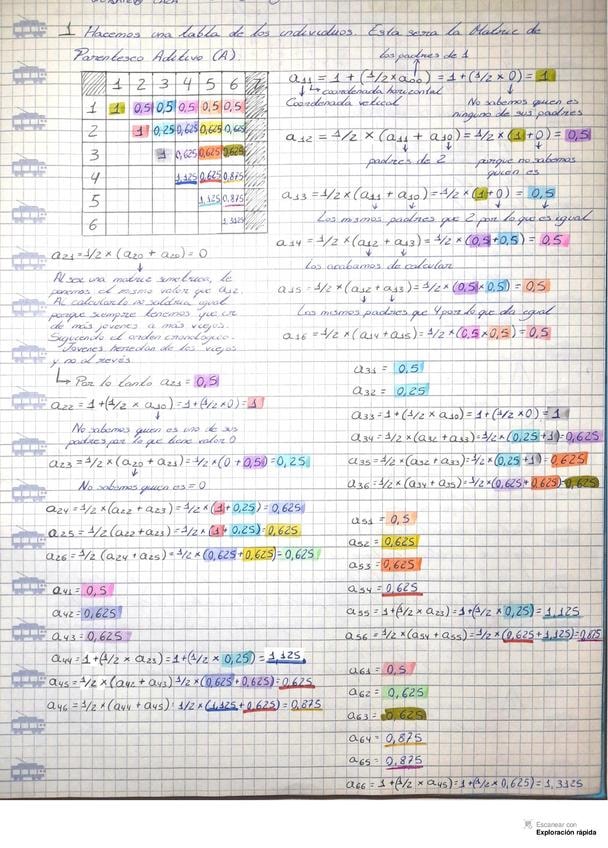 1 Hacemos una tabla de los individuos. Esta sera la Matriz de
Parentesco Aditivo (A).
1 2 3 4 5 6 7
1 1 0,5 0,5 0,5 0,5 0,5
2 1 0,25 0,625 0,625 0,625
3 1 0,625 0,625 0,625
4 1,125 0,625 0,875
5 1,125 0,875
6 1,3125
los padres de 1
a11 = 1 + (1/2 x a00) = 1 + (1/2 x 0) = 1
coordenada horizontal
Coordenada vertical
No sabemos quien es
ninguno de sus padres
a12 = 1/2 x (a11 + a10) = 1/2 x (1+0) = 0,5
padres de 2
porque no sabemos
quien es
a13 = 1/2 x (a11 + a10) = 1/2 x (1+0) = 0,5
Los mismos padres que 2 por lo que es igual
a14 = 1/2 x (a12 + a13) = 1/2 x (0,5+0,5) = 0,5
Los acabamos de calcular
a15 = 1/2 x (a12 + a13) = 1/2 x (0,5x0,5) = 0,5
Los mismos padres que 4 por lo que da igual
a16 = 1/2 x (a14 + a15) = 1/2 x (0,5x0,5) = 0,5
a21 = 1/2 x (a20 + a20) = 0
Al ser una matriz simetrica, le
ponemos el mismo valor que a12.
Al calcularlo no saldria igual
porque siempre tenemos que ir
de más jovenes a mas viejos.
Siguiendo el orden cronologico.
Jovenes heredan de los viejos
y no al revés
Por lo tanto a21 = 0,5
a22 = 1 + (1/2 x a10) = 1 + (1/2 x 0) = 1
No sabemos quien es uno de sus
padres por lo que tiene valor 0
a23 = 1/2 x (a20 + a21) = 1/2 x (0 + 0,5) = 0,25
No sabemos quien es = 0
a24 = 1/2 x (a22 + a23) = 1/2 x (1+0,25) = 0,625
a25 = 1/2 (a22 + a23) = 1/2 x (1+0,25) = 0,625
a26 = 1/2 (a24 + a25) = 1/2 x (0,625+0,625) = 0,625
a41 = 0,5
a42 = 0,625
a43 = 0,625
a44 = 1 + (1/2 x a23) = 1 + (1/2 x 0,25) = 1,125
a45 = 1/2 x (a42 + a43) 1/2 x (0,625+0,625) = 0,625
a46 = 1/2 x (a44 + a45) 1/2 x (1,125 + 0,625) = 0,875
a31 = 0,5
a32 = 0,25
a33 = 1 + (1/2 x a10) = 1 + (1/2 x 0) = 1
a34 = 1/2 x (a32 + a33) = 1/2 x (0,25+1) = 0,625
a35 = 1/2 x (a32 + a33) = 1/2 x (0,25+1) = 0,625
a36 = 1/2 x (a34 + a35) = 1/2 x (0,625+0,625) = 0,625
a51 = 0,5
a52 = 0,625
a53 = 0,625
a54 = 0,625
a55 = 1 + (1/2 x a23) = 1 + (1/2 x 0,25) = 1,125
a56 = 1/2 x (a54 + a55) = 1/2 x (0,625+1,125) = 0,875
a61 = 0,5
a62 = 0,625
a63 = 0,625
a64 = 0,875
a65 = 0,875
a66 = 1 + (1/2 x a45) = 1 + (1/2 x 0,625) = 1,3125
Escanear con
Exploración rápida